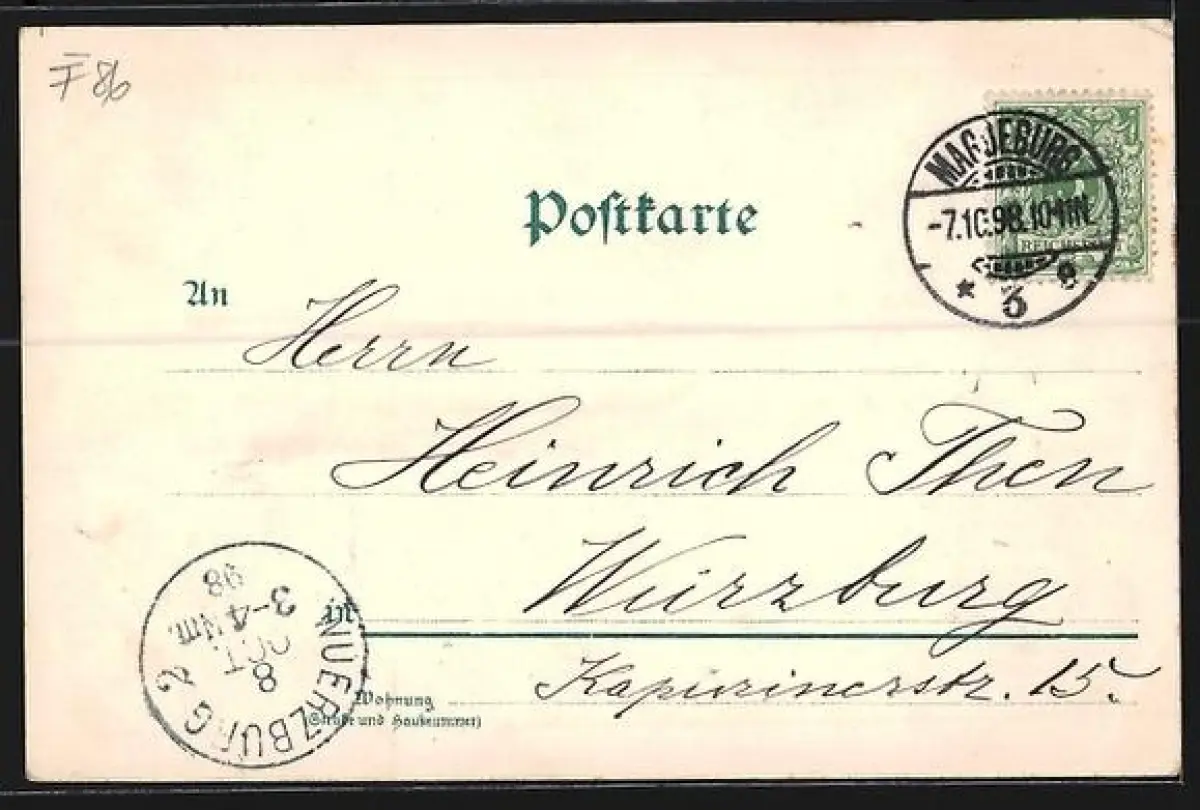 F 86
MAGDEBURG
-7.10.98.10-11N.
* 3 g
REICHSPOST
Postkarte
An
Herrn
Heinrich Then
in Würzburg
Kapuzinerstr. 15.
Wohnung
(Straße und Hausnummer)
WUERZBURG 2
8
OCT.
3-4 Nm.
98